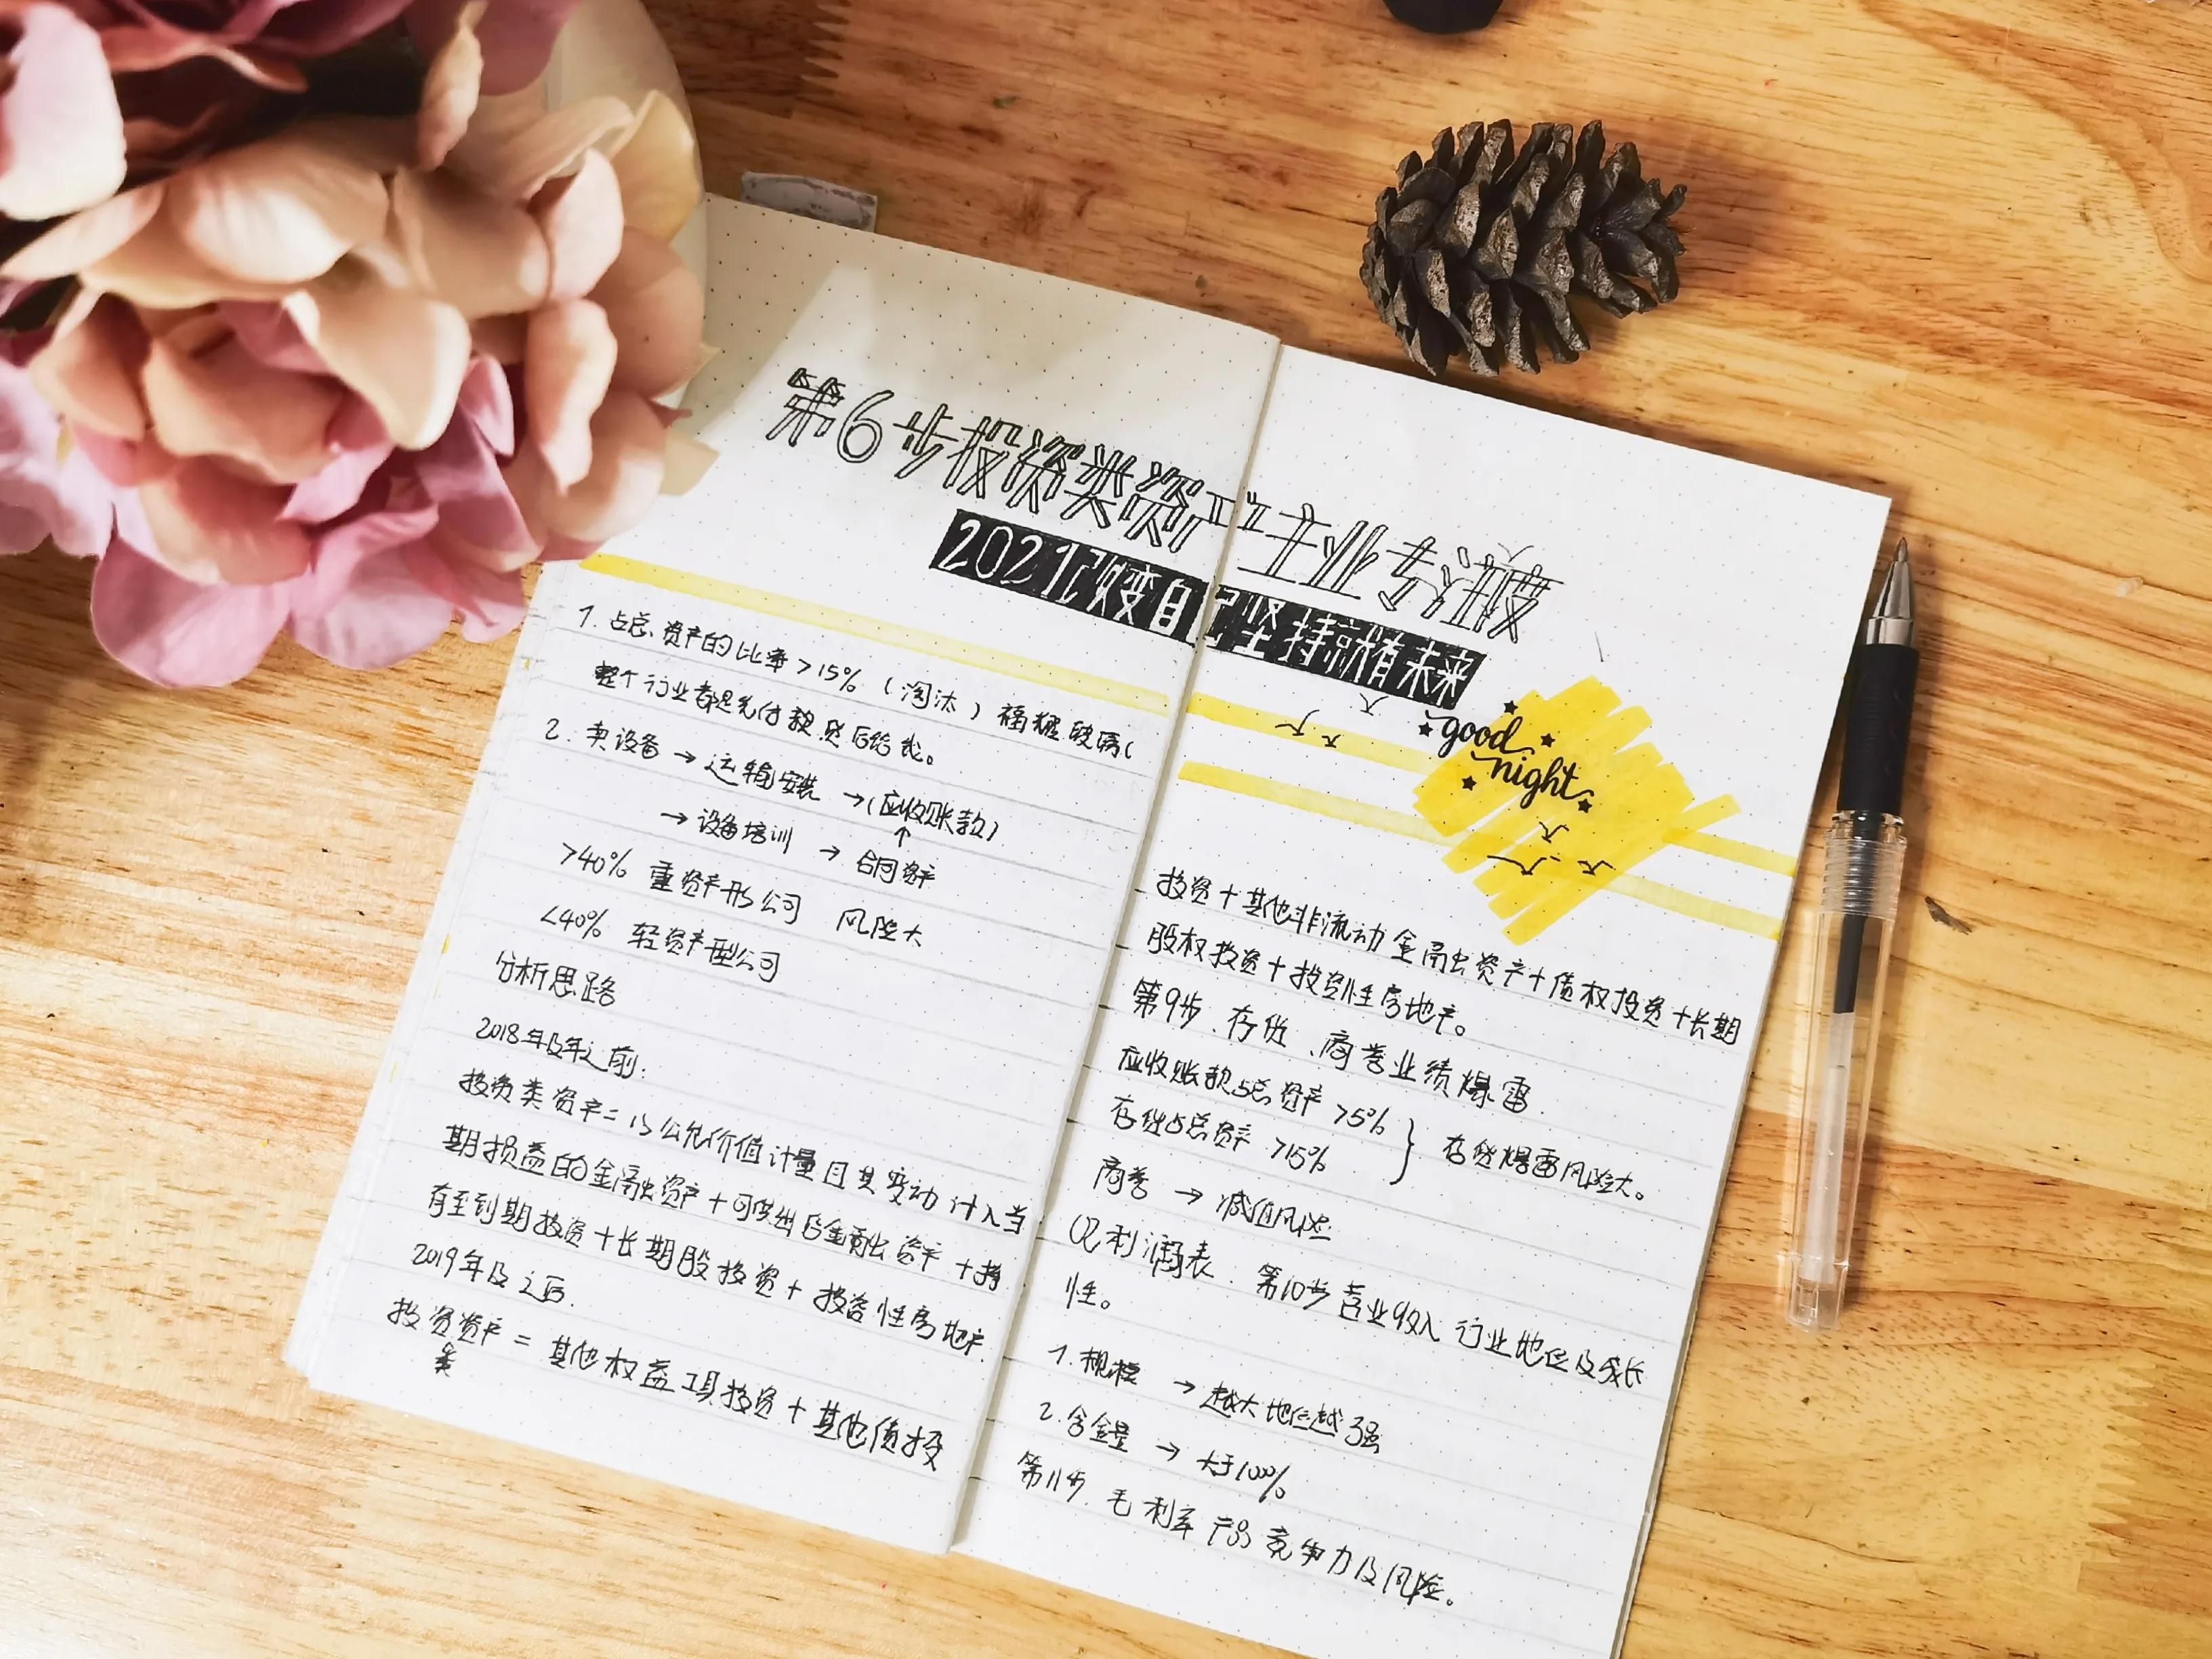 第6步投资类资产主业专注度
2021改变自己坚持就有未来
1. 占总资产的比率>15% (淘汰) 福耀玻璃(
整个行业都是先付款货后给我。
2. 卖设备→运输安装→(应收账款)
↑
→设备培训→合同资产
>40% 重资产形公司 风险大
<40% 轻资产型公司
分析思路
2018年及年之前:
投资类资产=以公允价值计量且其变动计入当
期损益的金融资产+可供出售金融资产+持
有至到期投资+长期股投资+投资性房地产.
2019年及之后.
投资资产=其他权益工具投资+其他债投
类
good
night
投资+其他非流动金融资产+债权投资+长期
股权投资+投资性房地产。
第9步、存货、商誉业绩爆雷.
应收账款占总资产>5%
存货占总资产>15% } 存货爆雷风险大。
商誉→减值风险
利润表. 第10步 营业收入 行业地位及成长
性。
1.规模→越大地位越强
2.含金量→大于100%
第11步. 毛利率 产品竞争力及风险。